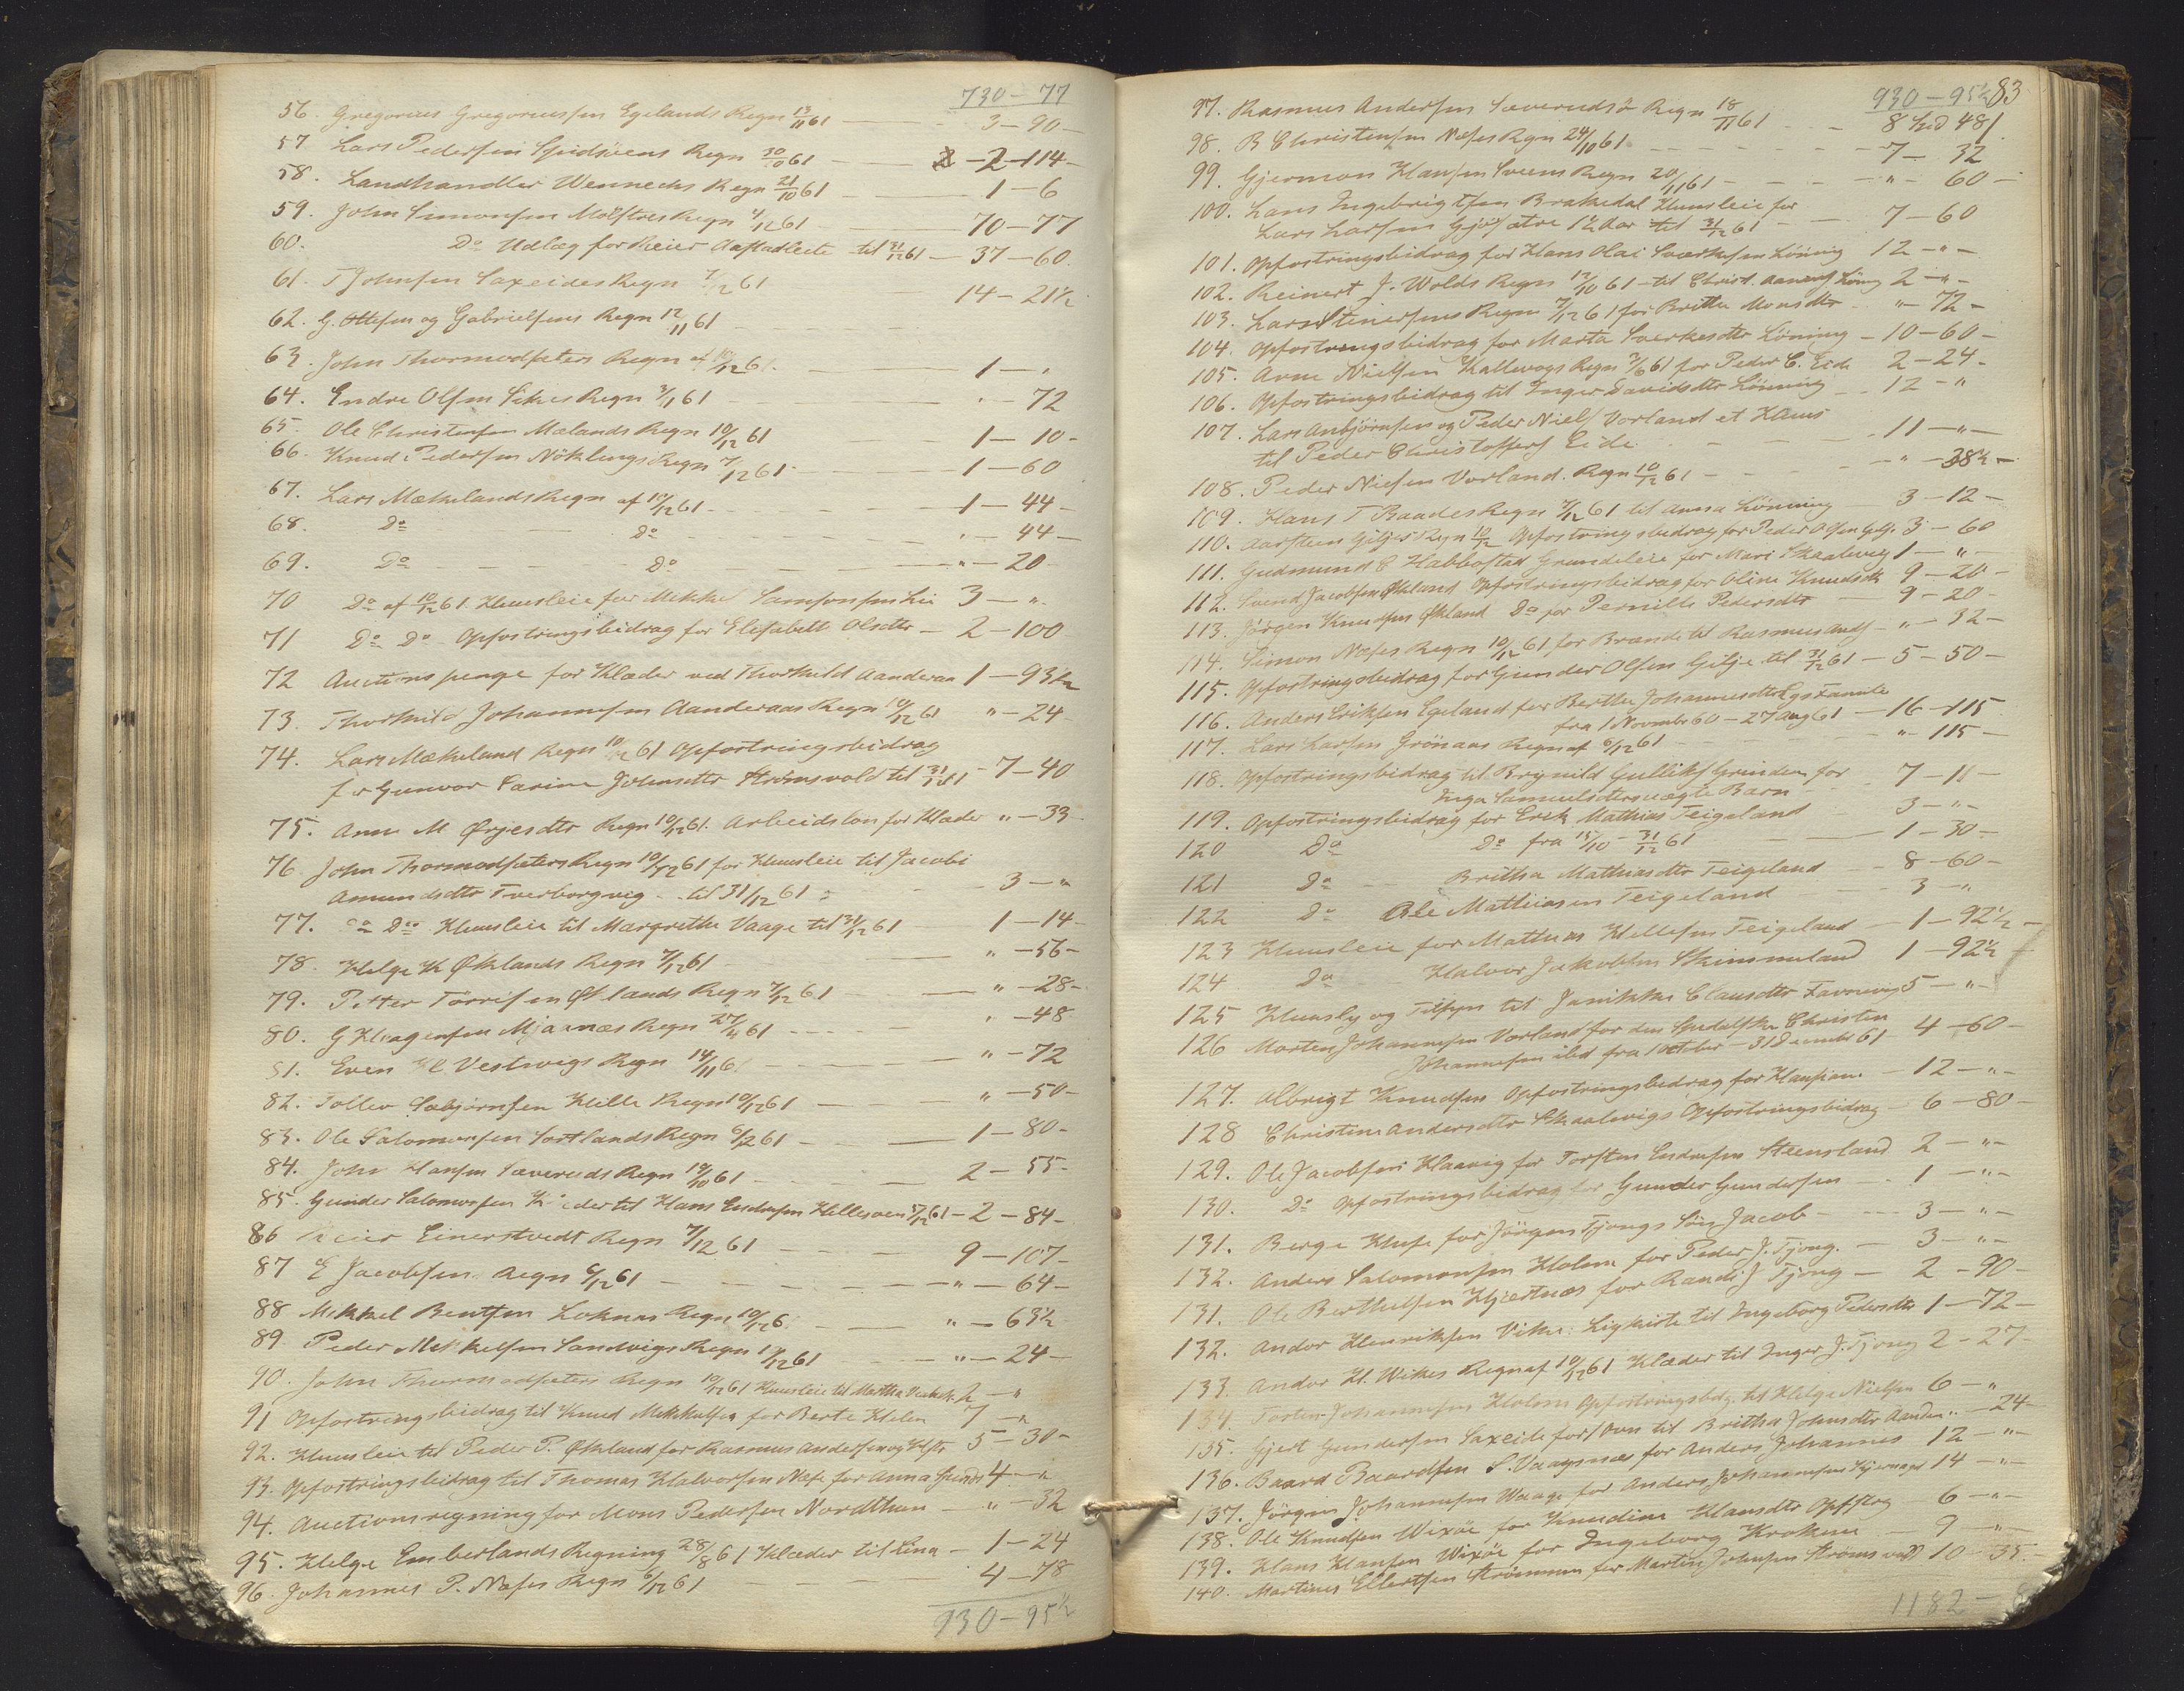 730 – 77
56. Gregorius Gregoriussen Egelands Regn 13/11 61 — 3 – 90 –
57 Lars Pedersen Regn 30/10 61 — 2 – 114 –
58. Landhandler Wennechs Regn 21/10 61 — 1 – 6
59. John Simonsen Regn 4/12 61 — 70 – 77
60. Do Udlæg for Reier til 31/12 61 — 37 – 60.
61. T Johnsen Saxeides Regn 7/12 61 14 – 21½
62. G. Ottesen og Gabrielsens Regn 12/11 61
63. John Thormodsæters Regn af 10/12 61. 1 – "
64. Endre Olsen Regn 3/11 61 " – 72
65. Ole Christensen Mælands Regn 10/12 61 1 – 10 –
66. Knud Pedersen Nöklings Regn 7/12 61 — 1 – 60
67. Lars Mækelands Regn af 10/12 61 — 1 – 44 –
68. Do Do " – 44 –
69. Do Do " – 20 –
70 Do af 10/12 61. Huusleie for Mikkel Samsonsen Lie 3 – "
71 Do Do Opfostringsbidrag for Elisabeth Olsdtr — 2 – 100
72 Auctionspenge for Klæder ved Thorkild Aanderaa 1 – 93½
73. Thorkild Johannesen Aanderaas Regn 10/12 61 " – 24
74. Lars Mækeland Regn 10/12 61 Opfostringsbidrag
for Gunvor Karine Johnsdtr Strömsvold til 31/12 61 – 7 – 40
75. Anne M. Ørjesdtr Regn 10/12 61. Arbeidslön for Klæder " – 33
76 John Thormodsæters Regn 10/12 61 for Huusleie til Jacobi
Amundsdtr Tverborgvig til 31/12 61 3 – "
77. Do Do Huusleie til Margrethe Vaage til 31/12 61 1 – 14 –
78. Helge K Øklands Regn 7/12 61 " – 56 –
79. Petter Törrisen Øklands Regn 7/12 61 — " – 28 –
80. G Haagensen Mjaanæs Regn 27/11 61 " – 48
81. Even Vestvigs Regn 14/11 61 " – 72
82. Tollev Sæbjörnsen Hille Regn 10/12 61 — " – 50 –
83. Ole Salomonsen Sortlands Regn 6/12 61 — 1 – 80 –
84. John Hansen Sæveruds Regn 19/10 61 2 – 55 –
85. Gunder Salomonsen Klæder til Hans Endresen 61 – 2 – 84 –
86 Reier Einerstvedt Regn 7/12 61 9 – 107 –
87 E Jacobsen Regn 6/12 61 " – 64 –
88 Mikkel Bentsen Loknæs Regn 10/12 61 " – 63½
89. Peder Mikkelsen Sandvigs Regn 61 " – 24 –
90. John Thormodsæters Regn 10/12 61 Huusleie til Martha 2 – "
91 Opfostringsbidrag til Knud Mikkelsen for Berte Helen 7 – "
92. Huusleie til Peder P. Økland for Rasmus Andersen og 5 – 30 –
93. Opfostringsbidrag til Thomas Halvorsen Næse for Anna 4 – "
94. Auctionsregning for Mons Pedersen Nordthun — " – 32
95. Helge Emberlands Regning 28/8 61 Klæder til Lina – 1 – 24
96. Johannes P. Næses Regn 6/12 61 4 – 78
930 – 95½
930 – 95½ 83
97. Rasmus Andersen Sæveruds Regn 18/11 61 8 48½
98. B Christensen Næses Regn 24/10 61 7 – 32
99. Gjermon Hansen Regn 20/11 61 " – 60 –
100. Lars Ingebrigtsen Brakedal Huusleie for
Lars Larsen ½ Aar til 31/12 61 7 – 60
101. Opfostringsbidrag for Hans Olai Sværkesen Lönning 12 – " –
102. Reinert J. Wolds Regn 12/10 61 til Christ. Lönning 2 – " –
103. Lars Steinersens Regn 7/12 61 for Brithe Monsdtr " – 72 –
104. Opfostringsbidrag for Marta Sverkesdtr Lönning – 10 – 60 –
105. Arne Nielsen Kallevags Regn 61 for Peder C. Eide 2 – 24 –
106. Opfostringsbidrag til Inger Davidsdtr Lönning 12 – "
107. Lars Anbjörnsen og Peder Niels. Vorland et Huus
til Peder Christoffers. Eide 11 – " –
108. Peder Nielsen Vorland. Regn 10/12 61 " – 38½ –
109. Hans T Baades Regn 7/12 61 til Anna Lönning 3 – 12 –
110. Aarsteen Giljes Regn 10/12 Opfostringsbidrag for Peder Olsen Gilje 3 – 60
111. Gudmund E Habbestad Grundeleie for Mari Skaalevig 1 – " –
112. Svend Jacobsen Økland Opfostringsbidrag for Oline Knudsdtr 9 – 20 –
113. Jörgen Knudsen Økland Do for Pernille Pedersdtr 9 – 20 –
114. Simon Næses Regn 10/12 61 for Brænde til Rasmus Ands. – " – 32 –
115. Opfostringsbidrag for Gunder Olsen Gilje til 31/12 61 – 5 – 50 –
116. Anders Eriksen Egeland for Berthe Johannesdtr Familie
fra 1 Novembr 60 – 27 Aug 61 — 16 – 115
117. Lars Larsen Grönaas Regn af 6/12 61 " – 115 –
118. Opfostringsbidrag til Brynild Gulliks. Grinden for
Inga Samuelsdtrs uægte Barn 7 – 11 –
119. Opfostringsbidrag for Erik Mathias. Teigeland 3 – " –
120 Do Do fra 15/10 – 31/12 61 1 – 30 –
121 Do Britha Mathiasdtr Teigeland 8 – 60 –
122 Do Ole Mathiasen Teigeland 3 – "
123 Huusleie for Mathias Hellesen Teigeland 1 – 92½ –
124 Do Halvor Jakobsen Skimmeland 1 – 92½
125 Huusly og Tilsyn til Jannikke Clausdtr 5 – " –
126 Morten Johannesen Vorland for den Spedalske Christen
Johannesen ibid fra 1 October – 31 December 61 4 – 60 –
127. Albrigt Knudsen Opfostringsbidrag for 12 – " –
128 Christine Andersdtr Skaalevigs Opfostringsbidrag 6 – 80 –
129. Ole Jacobsen Haavig for Torsten Endresen Steensland 2 – " –
130. Do Opfostringsbidrag for Gunder Gundersen 1 – " –
131. Berge for Jörgen Tjongs Sön Jacob 3 – " –
132. Anders Salomonsen Holum for Peder J. Tjong. 3 – " –
131. Ole Berthelsen Hjertnæs for Randi J Tjong — 2 – 90 –
132. Andor Henriksen Vike: Ligkiste til Ingeborg Pedersdtr 1 – 72 –
133. Andor H. Wikes Regn af 10/12 61 Klæder til Inger J. Tjong 2 – 27 –
134. Torsten Johannesen Holum Opfostringsbdg. til Helge Nielsen 6 – "
135. Gjert Gundersen Saxeide for 1 Ovn til Britha Johnsdtr " – 24 –
136. Baard Baardsen S. Vaagsnæs for Anders Johannes 12 – " –
137. Jörgen Johannesen Waage for Anders Johannesen 14 – " –
138. Ole Knudsen Wixöe for Knudine Hansdtr 6 – " –
139. Hans Hansen Wixöe for Ingeborg Kroken 9 – " –
140. Martines Ellertsen Strömmen for Martin Johnsen Strömsvold 10 – 35 –
1182 –